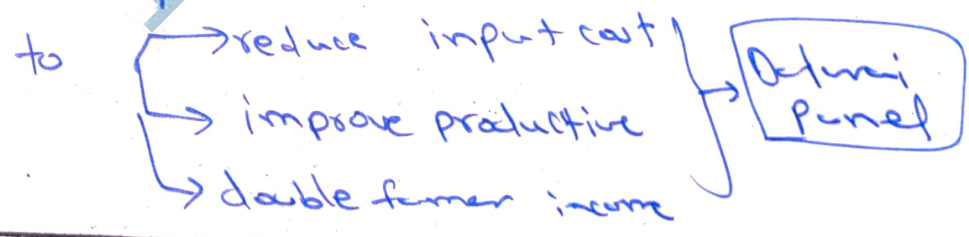 to
reduce input cost
improve productive
double farmer income
Dalwai
Panel